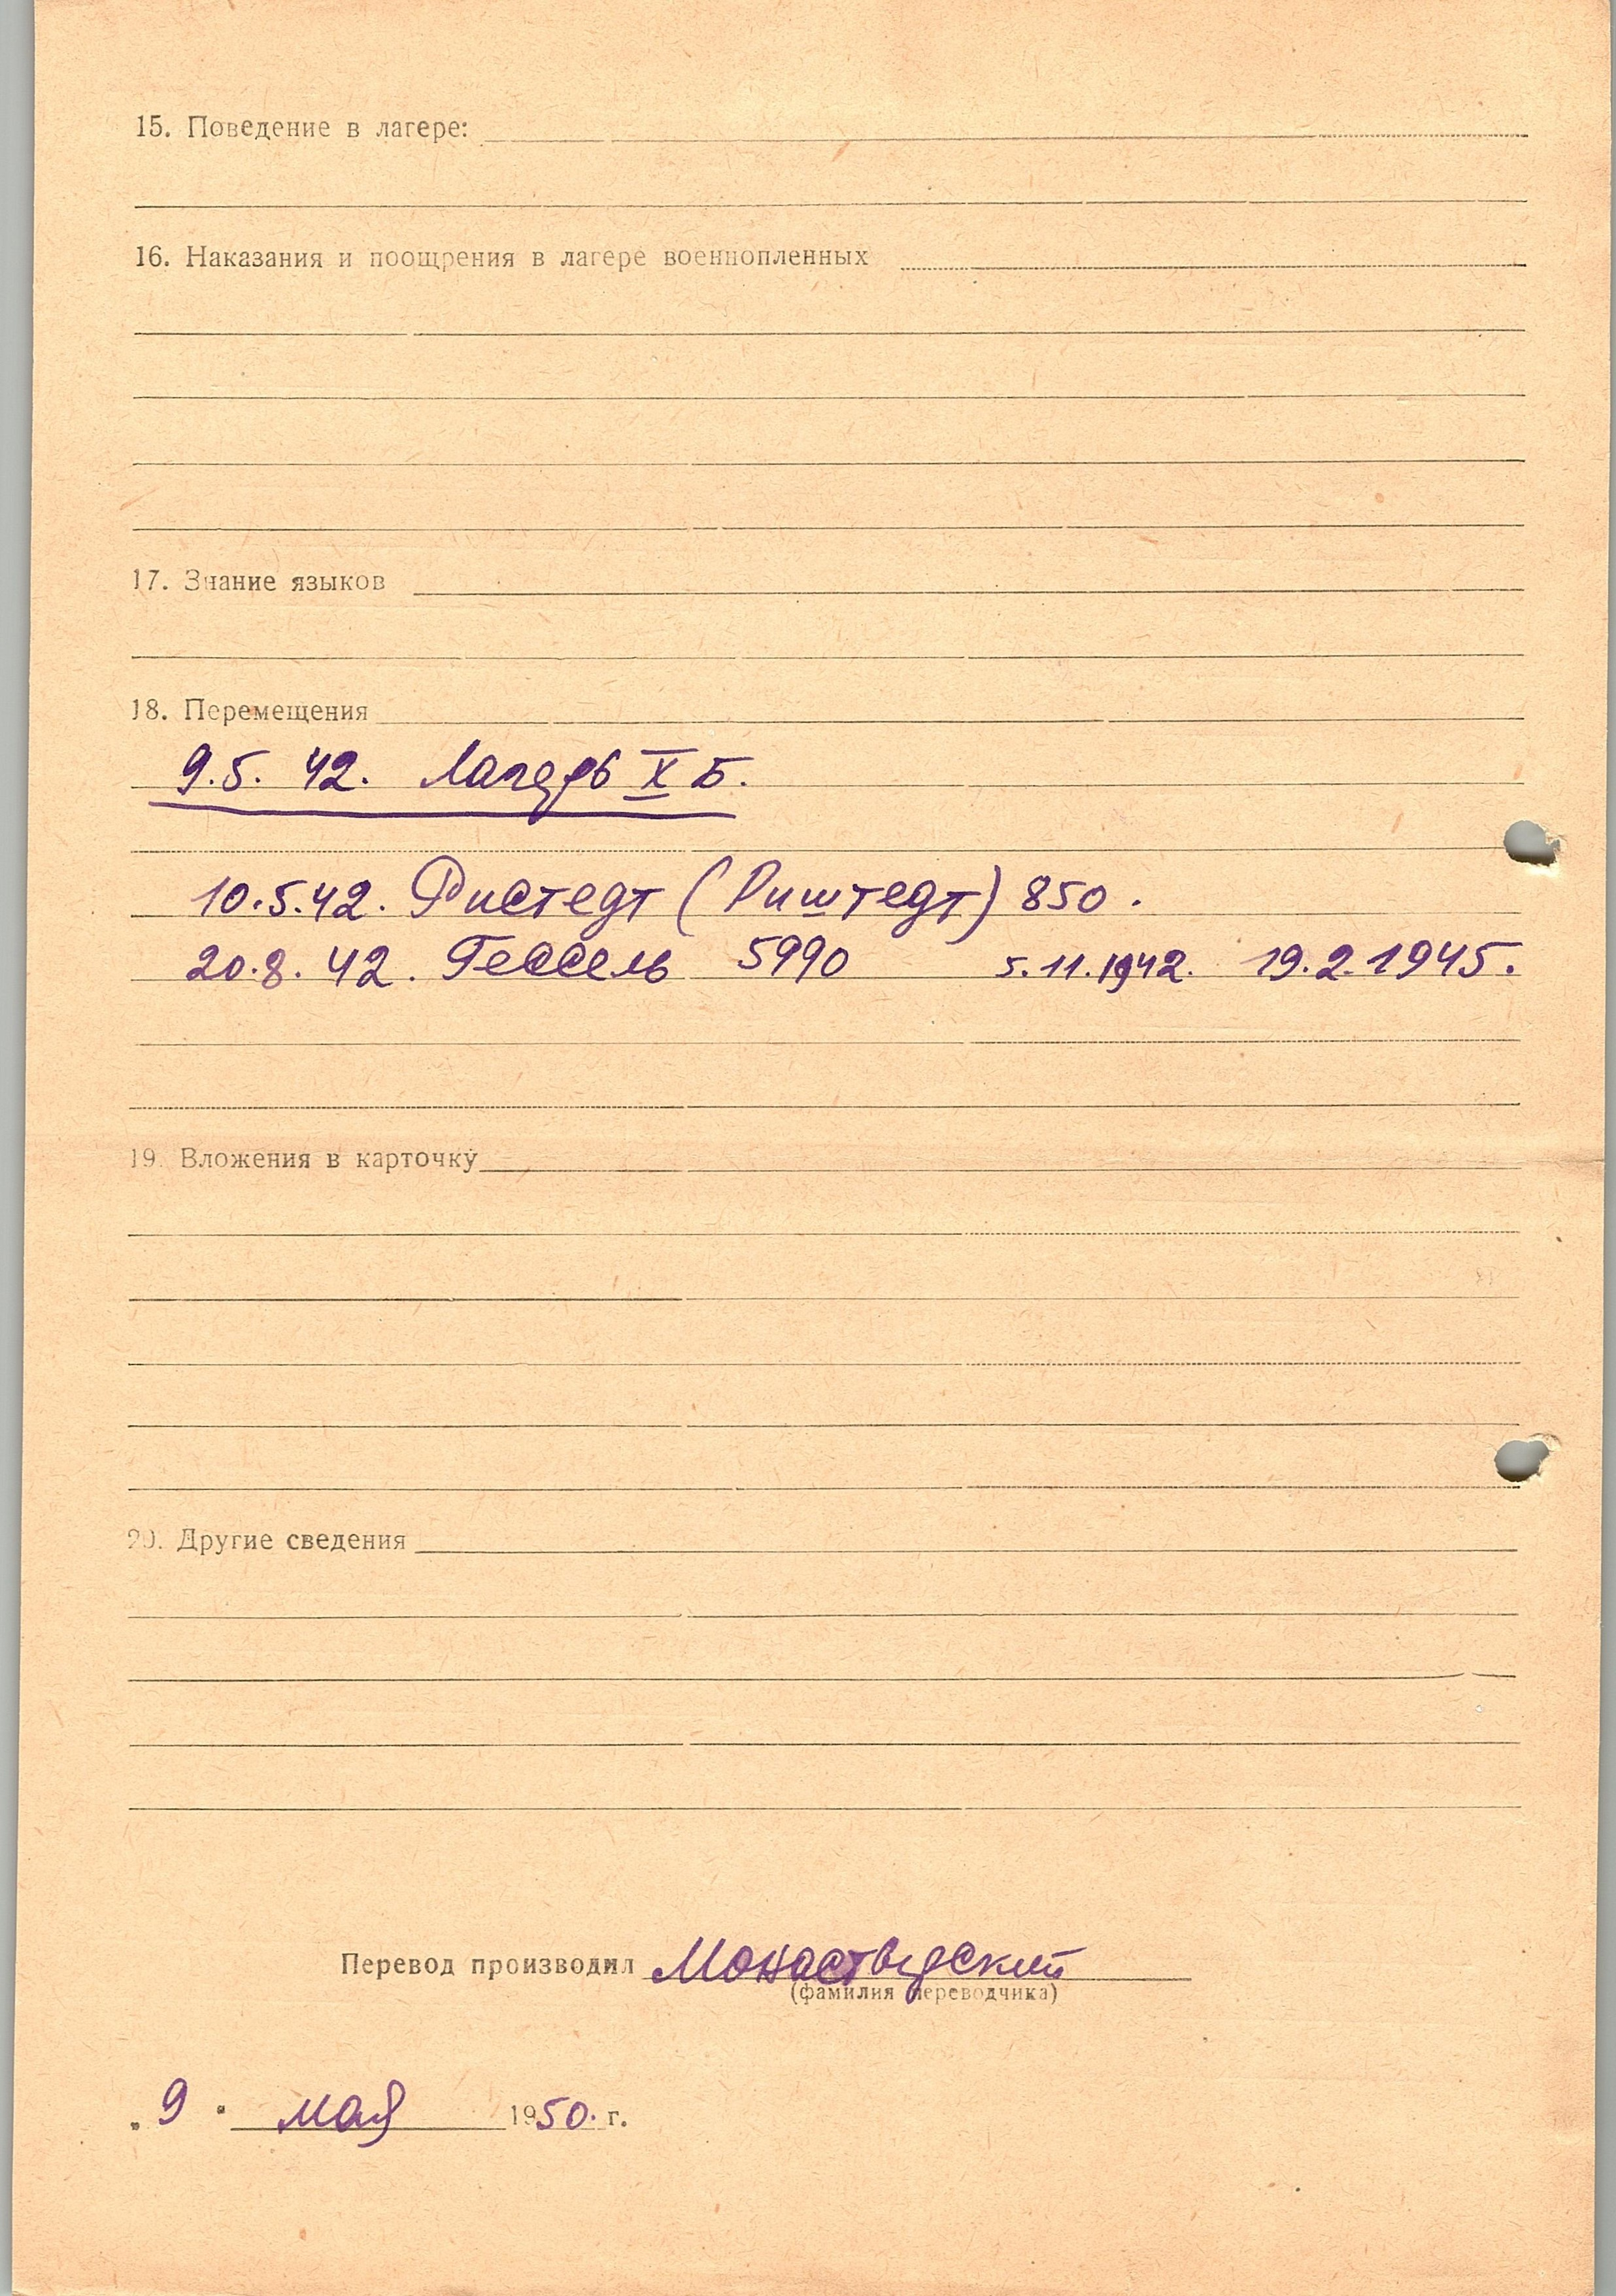 15. Поведение в лагере:
16. Наказания и поощрения в лагере военнопленных
17. Знание языков
18. Перемещения
9.5. 42. Лагерь X Б.
10.5.42. Ристедт (Риштедт) 850.
20.8.42. Гессель 5990 5.11.1942. 19.2.1945.
19. Вложения в карточку
20. Другие сведения
Перевод производил Монастырский
(фамилия переводчика)
„9" мая 1950. г.